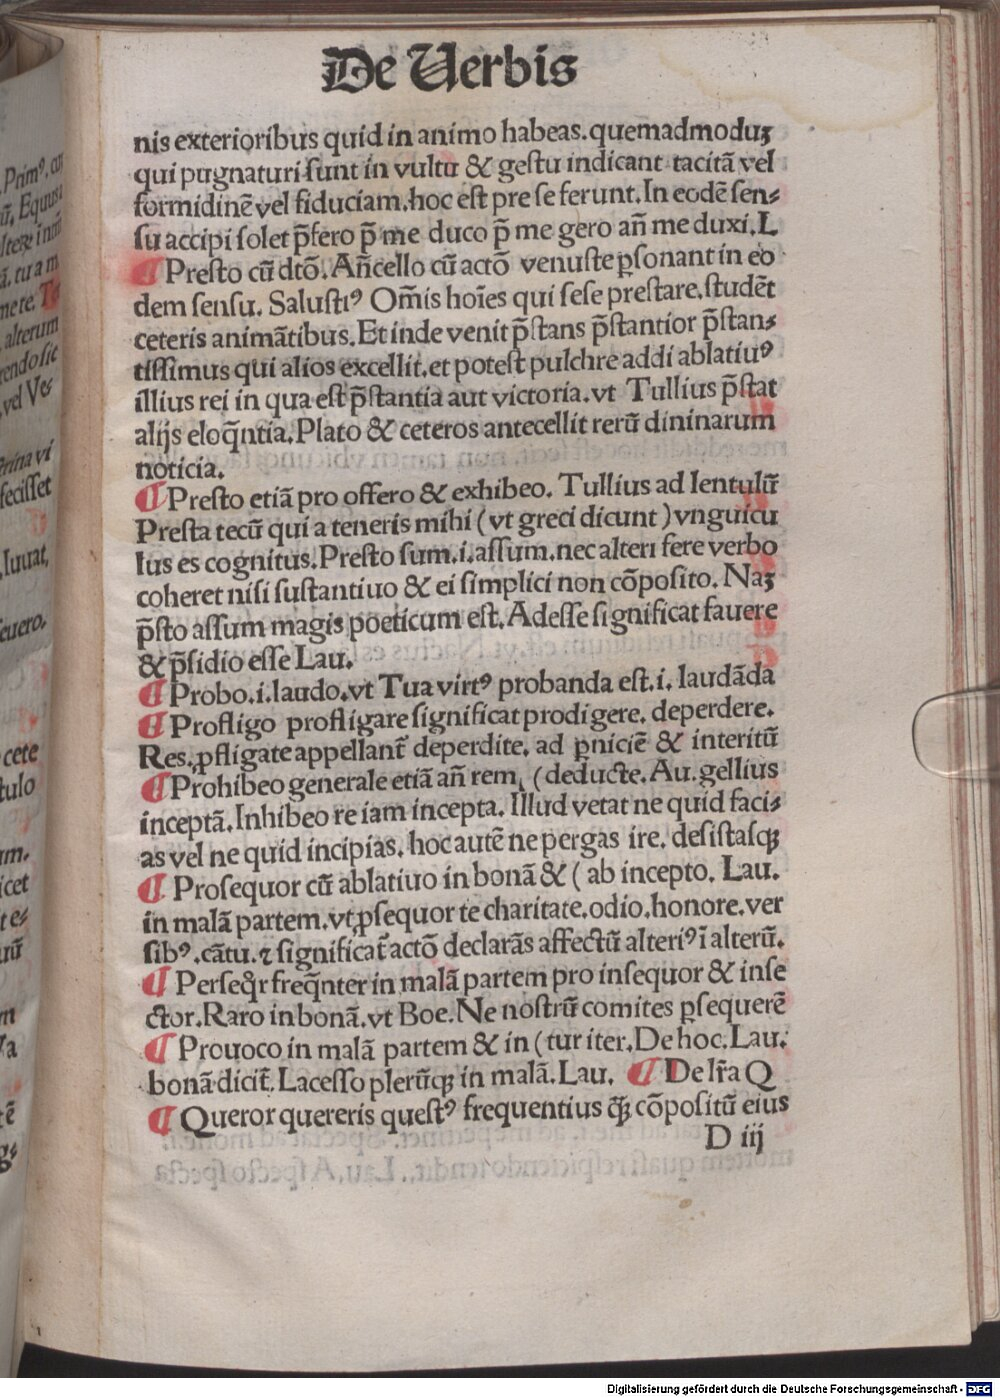 De Uerbis
nis exterioribus quid in animo habeas.quemadmoduꝫ
qui pugnaturi sunt in vultu & gestu indicant tacitā vel
formidinē vel fiduciam.hoc est pre se ferunt.In eodē sen⸗
su accipi solet p̄fero p̄ me duco p̄ me gero an̄ me duxi.L
¶ Presto cū dtō.An̄cello cū actō venuste ꝑsonant in eo
dem sensu. Salustiꝰ Om̄is hoīes qui sese prestare.studēt
ceteris animātibus.Et inde venit p̄stans p̄stantior p̄stan⸗
tissimus qui alios excellit.et potest pulchre addi ablatiuꝰ
illius rei in qua est p̄stantia aut victoria.vt Tullius p̄stat
alijs eloq̄ntia.Plato & ceteros antecellit rerū dininarum
noticia.
¶ Presto etiā pro offero & exhibeo. Tullius ad lentulū
Presta tecū qui a teneris mihi (vt greci dicunt) vnguicu
lus es cognitus.Presto sum.i.assum.nec alteri fere verbo
coheret nisi sustantiuo & ei simplici non cōposito. Naꝫ
p̄sto assum magis poeticum est.Adesse significat fauere
& p̄sidio esse Lau.
¶ Probo.i.laudo.vt Tua virtꝰ probanda est.i. laudāda
¶ Profligo profligare significat prodigere. deperdere.
Res ꝓfligate appellant̄ deperdite. ad ꝑniciē & interitū
¶ Prohibeo generale etiā an̄ rem (deducte. Au. gellius
inceptā.Inhibeo re iam incepta. Illud vetat ne quid faci⸗
as vel ne quid incipias. hoc autē ne pergas ire. desistasqꝫ
¶ Prosequor cū ablatiuo in bonā & (ab incepto. Lau.
in malā partem.vt ꝓsequor te charitate.odio.honore.ver
sibꝰ.cātu.⁊ significat̄ actō declarās affectū alteriꝰ ī alterū.
¶ Perseq̄r freq̄nter in malā partem pro insequor & inse
ctor.Raro in bonā.vt Boe.Ne nostrū comites ꝑsequerē
¶ Prouoco in malā partem & in (tur iter.De hoc. Lau.
bonā dicit̄. Lacesso plerūqꝫ in malā. Lau. ¶ De lr̄a Q
¶ Queror quereris questꝰ frequentius q̄ꝫ cōpositū eius
D iij
Digitalisierung gefördert durch die Deutsche Forschungsgemeinschaft - DFG